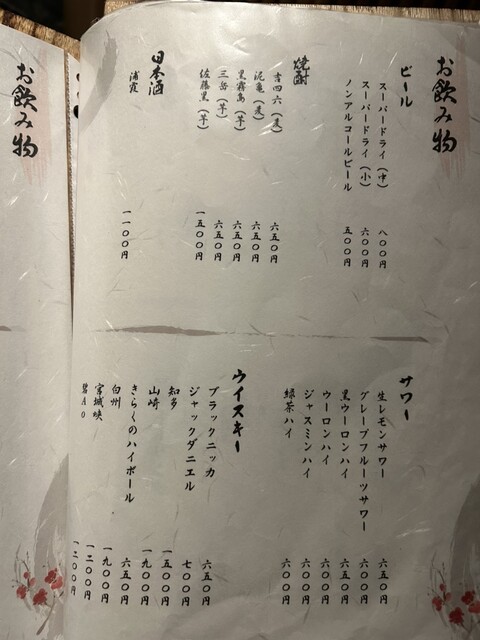 お飲み物
ビール
スーパードライ（中） 八〇〇円
スーパードライ（小） 六〇〇円
ノンアルコールビール 五〇〇円
焼酎
吉四六（麦） 六五〇円
泥亀（麦） 六五〇円
黒霧島（芋） 六五〇円
三岳（芋） 六五〇円
佐藤黒（芋） 一五〇〇円
日本酒
浦霞 一一〇〇円
サワー
生レモンサワー 六五〇円
グレープフルーツサワー 六〇〇円
黒ウーロンハイ 六五〇円
ウーロンハイ 六〇〇円
ジャスミンハイ 六〇〇円
緑茶ハイ 六〇〇円
ウイスキー
ブラックニッカ 六五〇円
ジャックダニエル 七〇〇円
知多 一五〇〇円
山崎 一九〇〇円
きらくのハイボール 六五〇円
白州 一九〇〇円
宮城峡 一二〇〇円
碧AO 一二〇〇円
お飲み物